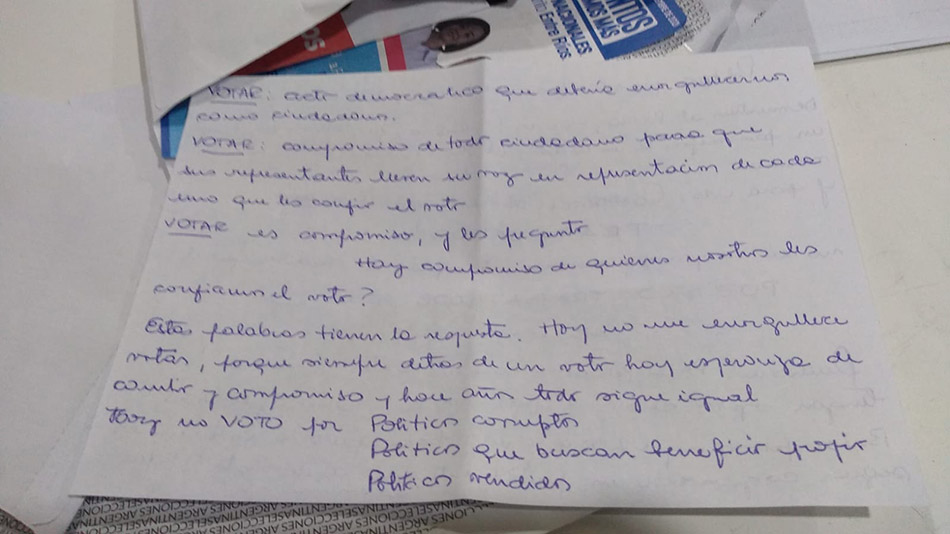 OS
NTOS
MOS MÁS
NACIONALES
Entre Ríos
VOTAR: acto democratico que debería enorgullecernos
como ciudadano.
VOTAR: compromiso de todo ciudadano para que
sus representantes lleven su voz en representación de cada
uno que les confir el voto
VOTAR es compromiso, y les pregunto
Hay compromiso de quienes nosotros les
confiamos el voto?
Estas palabras tienen la respuesta. Hoy no me enorgullece
votar, porque siempre detras de un voto hay esperanza de
cambio y compromiso y hace años todo sigue igual
Hoy no VOTO por Politicos corruptos
Politicos que buscan beneficio propio
Politicos vendidos
CIONES ARGENTINAS ELECCIONES ARGENTINAS ELECCIONES ARGENTINAS